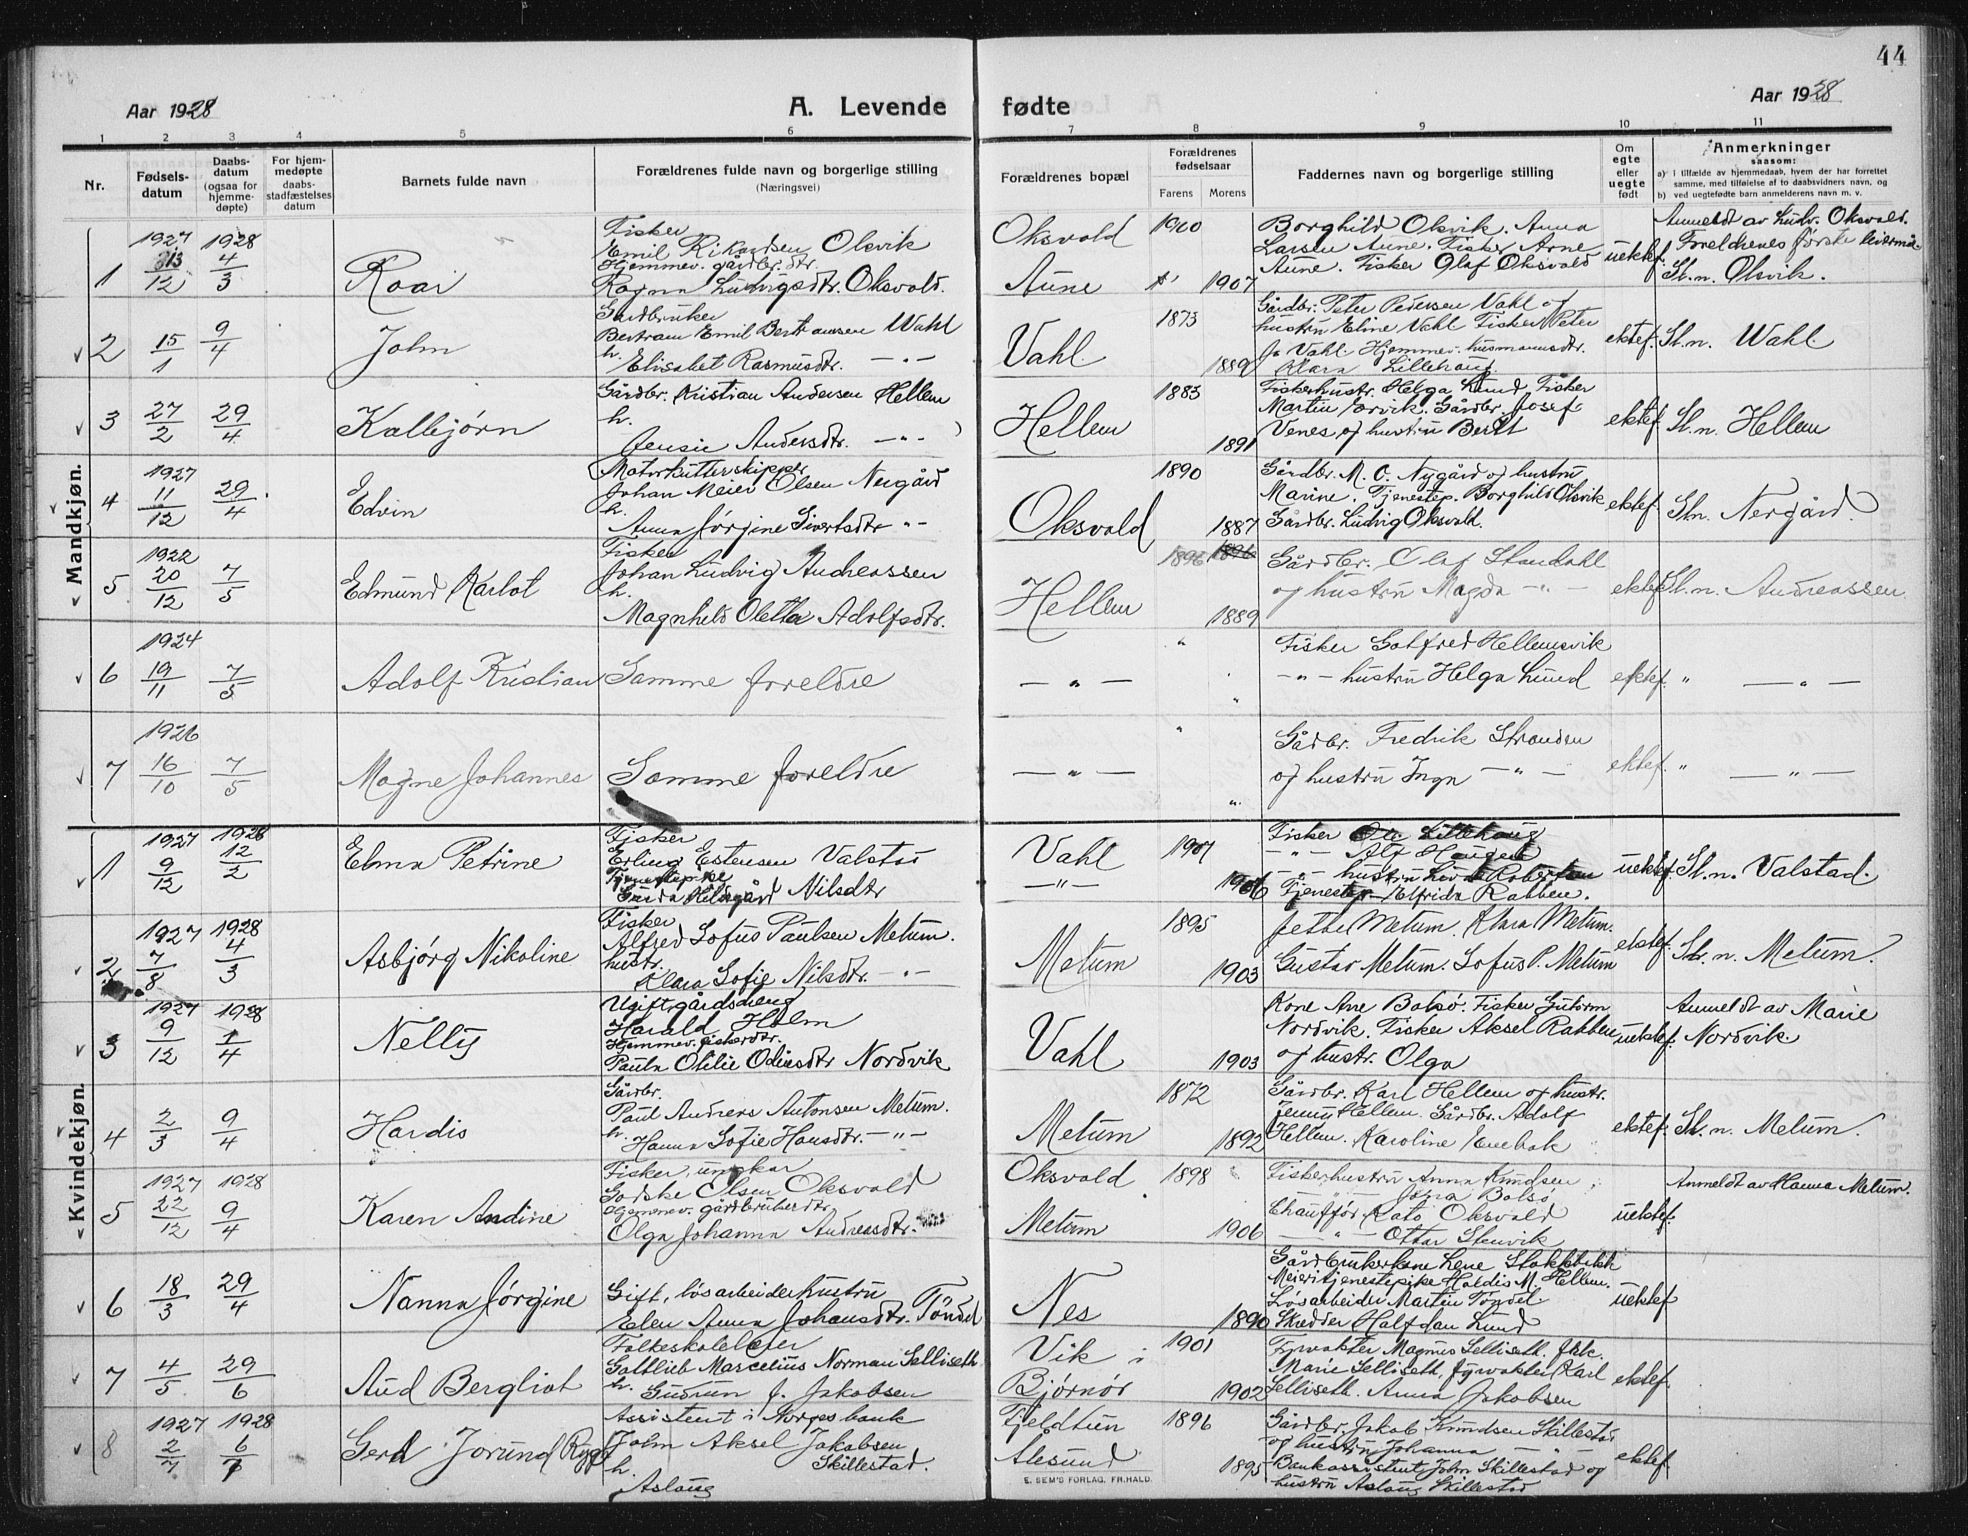 44
Aar 1928
A. Levende fødte
Aar 1928
1 2 3 4 5 6 7 8 9 10 11
Nr.
Fødsels-
datum
Daabs-
datum
(ogsaa for
hjemme-
døpte)
For hjem-
medøpte
daabs-
stadfæstelses
datum
Barnets fulde navn
Forældrenes fulde navn og borgerlige stilling
(Næringsvei)
Forældrenes bopæl
Forældrenes
fødselsaar
Farens Morens
Faddernes navn og borgerlige stilling
Om
egte
eller
uegte
født
Anmerkninger
saasom:
a) i tilfælde av hjemmedaab, hvem der har forrettet
samme, med tilføielse af to daabsvidners navn, og
b) ved uegtefødte barn anmelderens navn m. v.
Mandkjøn.
1 1927 13/12 1928 4/3 Roar
Fisker
Emil Rikardsen Olsvik
Hjemmev. gårdbr. dtr.
Ragna Ludvigsdtr. Oksvold.
Oksvold
Aune
1900
1907
Borghild Olsvik. Anna
Larsen Aune. Fisker Arne
Aune. Fisker Olaf Oksvold
uektef.
Anmeldt av Ludv. Oksvold.
Foreldrenes første leiermål
Sl.n. Olsvik.
2 15/1 9/4 John
Gårdbruker
Bertram Emil Bertramsen Wahl
h.
Elisabet Rasmusdtr. — " —
Vahl.
1873
1889
Gårdbr. Peter Pedersen Vahl og
hustru Eline Vahl Fisker Peter
Jo Vahl. Hjemmev. husmannsdtr.
Klara Lillehaug.
ektef. Sl.n. Wahl.
3 27/2 29/4 Kallbjørn
Gårdbr. Kristian Andersen Hellem
h.
Jensie Andersdtr. — " —
Hellem
1883
1891
Fiskerhustr. Helga Lund Fisker
Martin Ervik. Gårdbr. Josef
Venes og hustru Berit
ektef. Sl.n. Hellem
4 1927 11/12 29/4 Edvin
Motorkutterskipper
Johan Meier Olsen Nergård
h.
Anna Jørgine Sivertsdtr — " —
Oksvold
1890
1887
Gårdbr. M. O. Nygård og hustru
Marine. Tjenestep. Borghild Olsvik
Gårdbr. Ludvig Oksvold.
ektef. Sl.n. Nergård.
5 1922 20/12 7/5 Edmund Karlot
Fisker
Johan Ludvig Andreassen
h.
Magnhild Oletta Adolfsdtr.
Hellem
1896 1896
1889
Gårdbr. Olaf Standahl
og hustru Magda — " —
ektef. Sl.n. Andreassen
6 1924 19/11 7/5 Adolf Kristian Samme foreldre
— " — " "
Fisker Gotfred Hellemsvik
— " — hustru Helga Lund
ektef. " — " —
7 1926 16/10 7/5 Magne Johannes Samme foreldre
— " — " "
Gårdbr. Fredrik Stranden
og hustru Inga — " —
ektef. " — " —
Kvindekjøn.
1 1927 9/12 1928 12/2 Elma Petrine
Fisker
Erling Estensen Valstad
Tjenestepike
Hildegård Nilsdtr
Vahl
— " —
1907
1906
Fisker Ole Lillehaug
— " — Alf Haugen
— " — hustru
Tjenestep. Elfrida Rabben.
uektef. Sl.n. Valstad.
2 1927 7/8 1928 4/3 Asbjørg Nikoline
Fisker
Alfred Sofus Paulsen Metum.
hustr.
Klara Sofie Nilsdtr. — " —
Metum
1895
1903
Metum. Klara Metum.
Gustav Metum. Sofus P. Metum
ektef. Sl.n. Metum.
3 1927 9/12 1928 1/4 Nelly
Ugift gårdsdreng
Harald Holm
Hjemmev. fiskerdtr.
Paula Otilie Odinsdtr Nordvik
Vahl
1903
Kone Ane Bolsø. Fisker Guttorm
Nordvik. Fisker Aksel Rabben
og hustr. Olga
uektef.
Anmeldt av Marie
Nordvik.
4 2/3 9/4 Hardis
Gårdbr.
Paul Andreas Antonsen Metum.
h.
Hanna Sofie Hansdtr. — " —
Metum
1872
1892
Gårdbr. Karl Hellem og hustr.
Jenny Hellem. Gårdbr. Adolf
Hellem. Karoline Enebak
ektef. Sl.n. Metum.
5 1927 22/12 1928 9/4 Karen Andine
Fisker, ungkar
Godske Olsen Oksvold
Hjemmev. gårdbrukerdtr
Olga Johanna Andreasdtr.
Oksvold
Metum
1898
1906
Fiskerhustru Anna Knudsen
— " — Jona Bolsø
Chauffør Kato Oksvold
— " — Ottar Stenvik
uektef.
Anmeldt av Hanna Metum.
6 18/3 29/4 Nanna Jørgine
Gift, løsarbeiderhustru
Elen Anna Johansdtr. Tøndel
Nes
1890
Gårdbrukerkone Lene Stokkbekk
Meieritjenestepike Haldis M. Hellem.
Løsarbeider Martin Tøndel.
Skredder Halfdan Lund
uektef
7 4/5 29/6 Aud Bergliot
Folkeskolelærer
Gottlieb Marcelius Norman Selliseth
h. Gudrun J. Jakobsen
Vik i
Bjørnør
1901
1902
Fyrvokter Magnus Selliseth. Frk.
Marie Selliseth, Fyrvokter Karl
Selliseth. Anna Jakobsen
ektef.
8 1927 2/7 1928 6/7 Gerd Jorund
Assistent i Norges bank
John Aksel Jakobsen
Skillestad.
h.
Aslaug
Fjeldtun
Ålesund
1896
1895
Gårdbr. Jakob Knudsen Skillestad
og hustru Johanna — " —
Bankassistent John Skillestad og
hustru Aslaug Skillestad
ektef.
E. SEM'S FORLAG, FR.HALD.